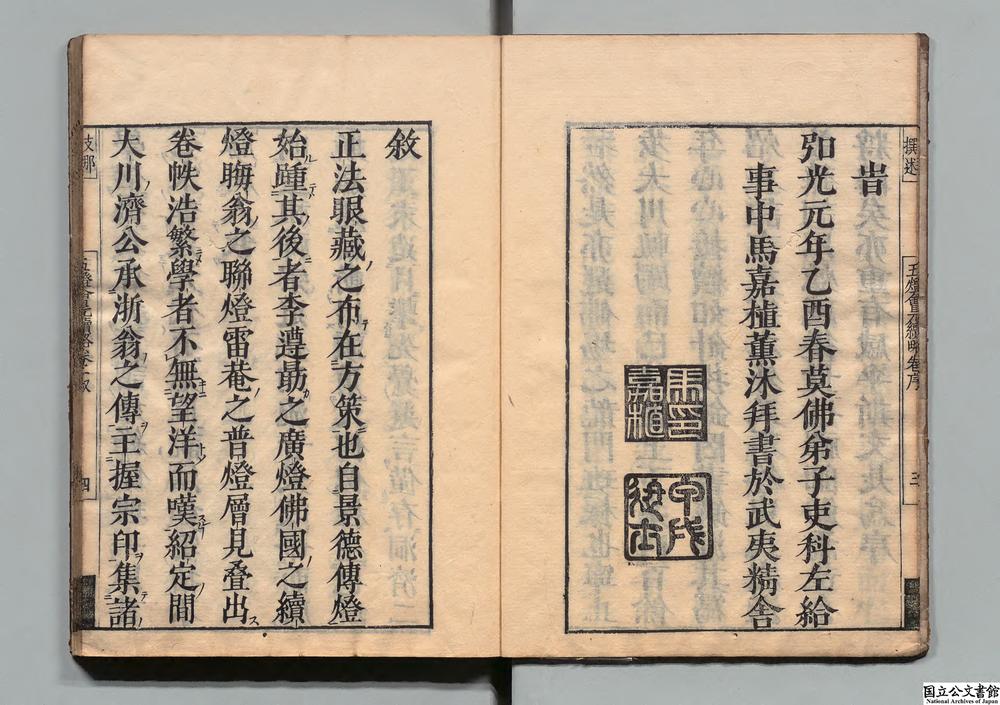 撰述
五燈會元續略卷序
三
旹
弘光元年乙酉春莫佛弟子吏科左給
事中馬嘉植薰沐拜書於武夷精舍
馬印嘉植
敘
正法眼藏之布在方策也自景德傳燈
始踵其後者李遵勗之廣燈佛國之續
燈晦翁之聯燈雷菴之普燈層見叠出
卷帙浩繁學者不無望洋而嘆紹定間
大川濟公承浙翁之傳王握宗印集諸
支那
五燈會元續略卷一敘
四
国立公文書館
National Archives of Japan